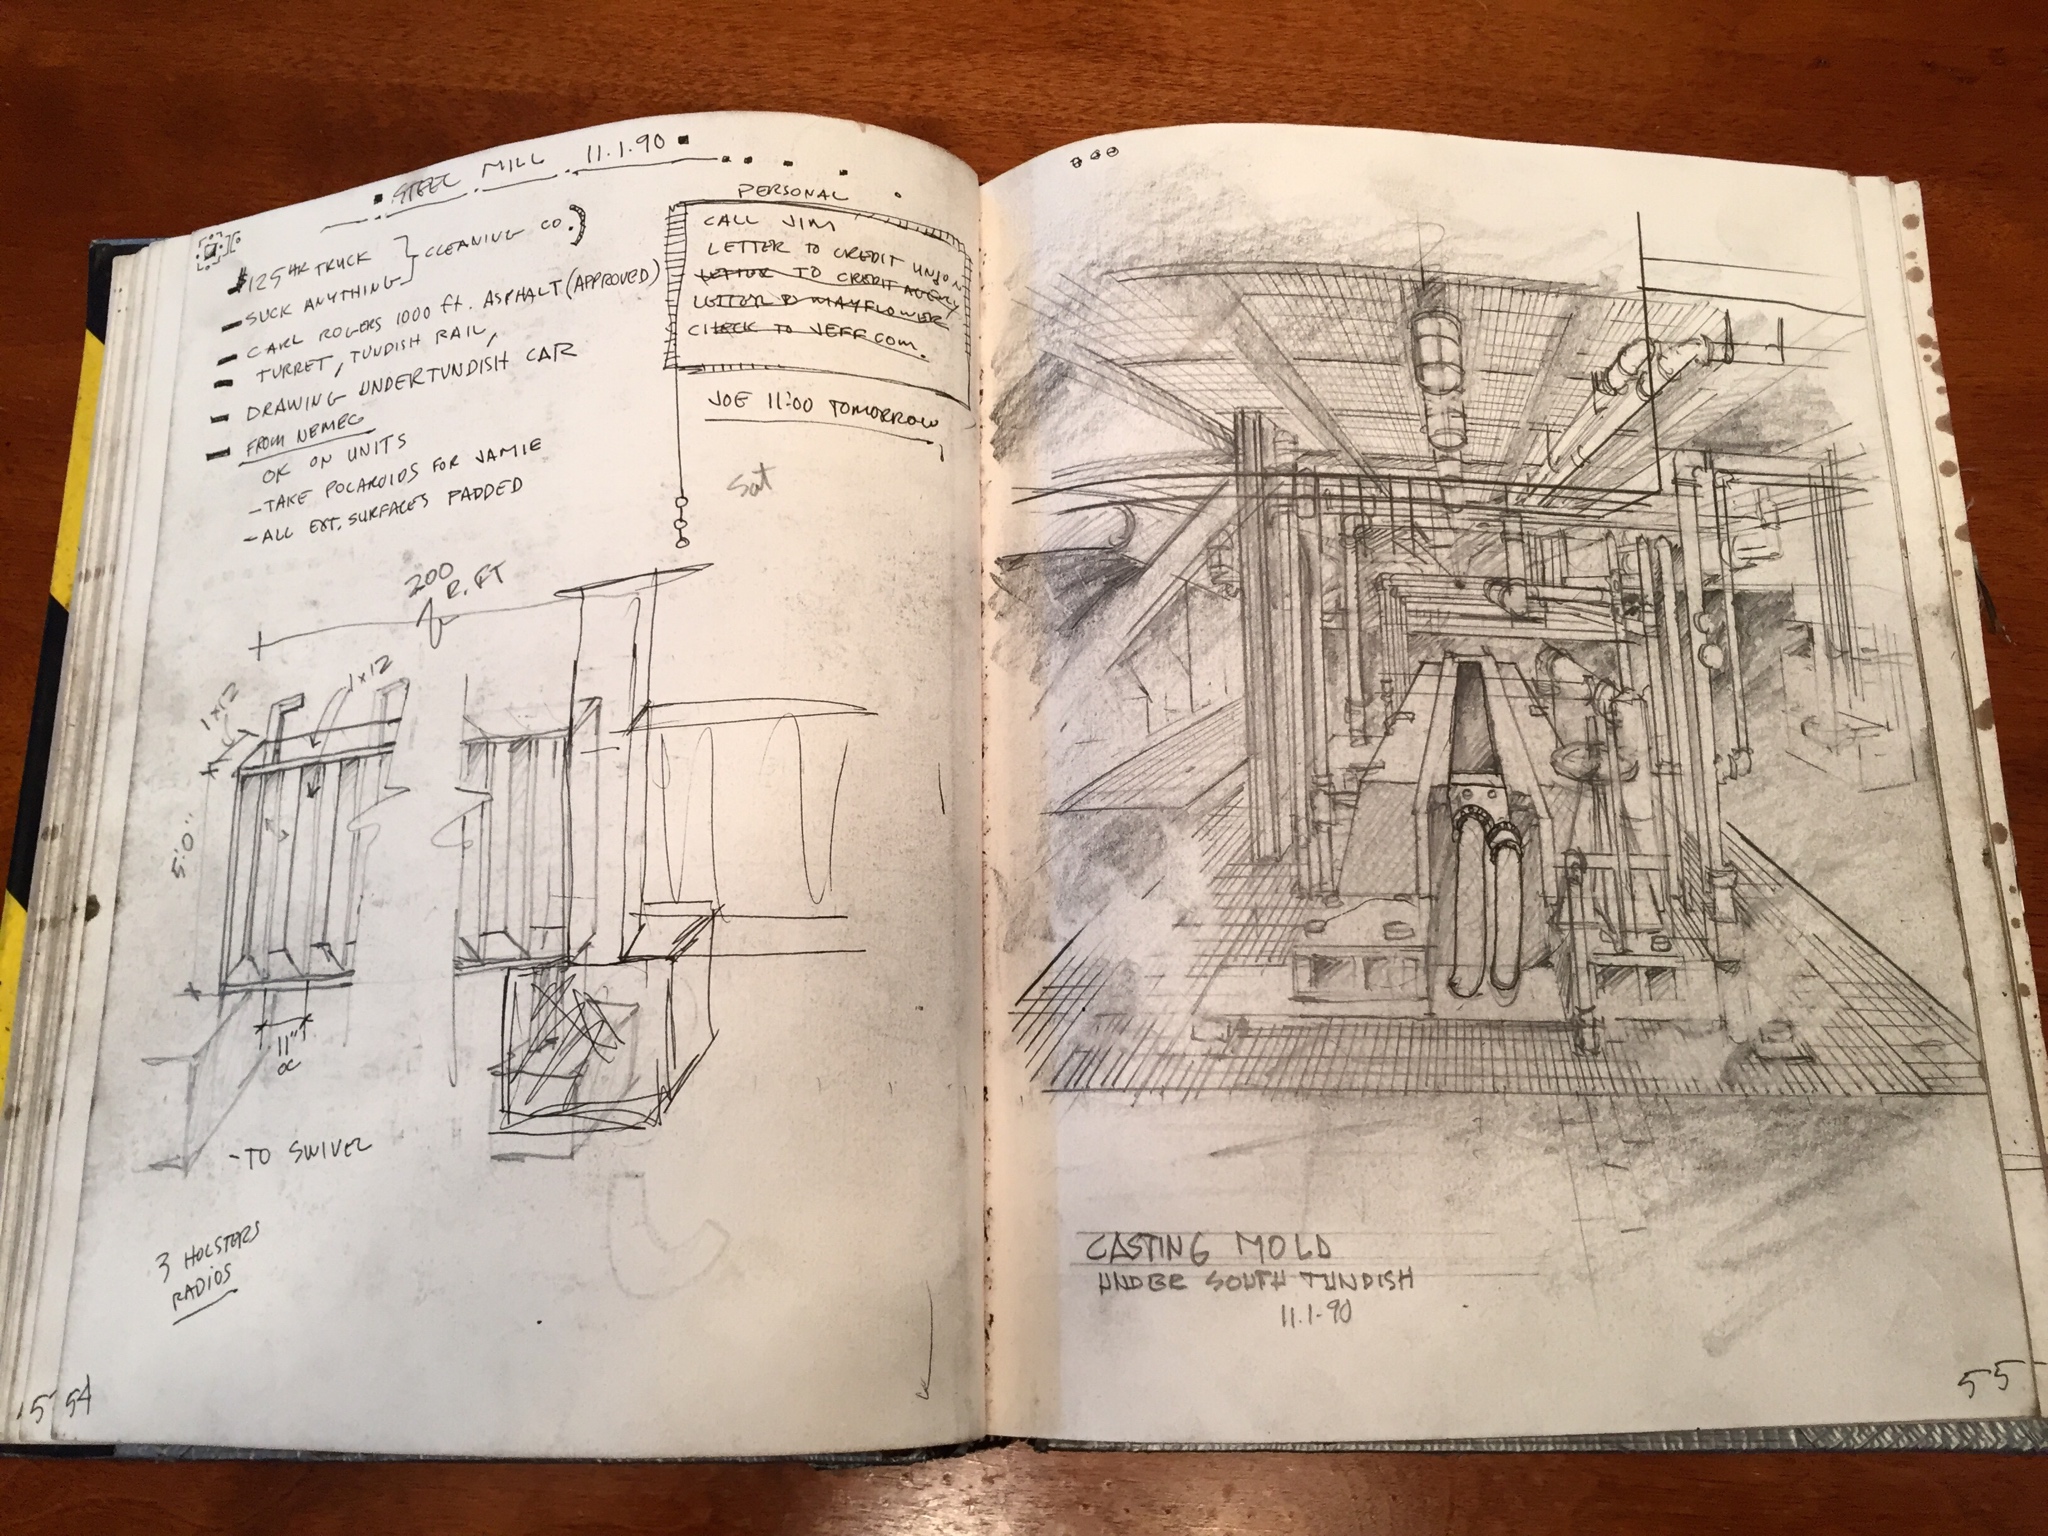 STEEL MILL 11.1.90
$125 HR TRUCK
SUCK ANYTHING
CLEANING CO.
CARL ROGERS 1000 ft. ASPHALT (APPROVED)
TURRET, TUNDISH RAIL,
DRAWING UNDERTUNDISH CAR
FROM NEMEC
OK ON UNITS
- TAKE POLAROIDS FOR JAMIE
- ALL EXT. SURFACES PADDED
PERSONAL
CALL JIM
LETTER TO CREDIT UNION
LETTER TO CREDIT AGENCY
LETTER TO MAYFLOWER
CHECK TO JEFFCOM.
JOE 11:00 TOMORROW
Sat
200
R. FT
1x12
1x12
5'.0"
11"
OC
- TO SWIVEL
3 HOLSTERS
RADIOS
54
CASTING MOLD
UNDER SOUTH TUNDISH
11.1-90
55